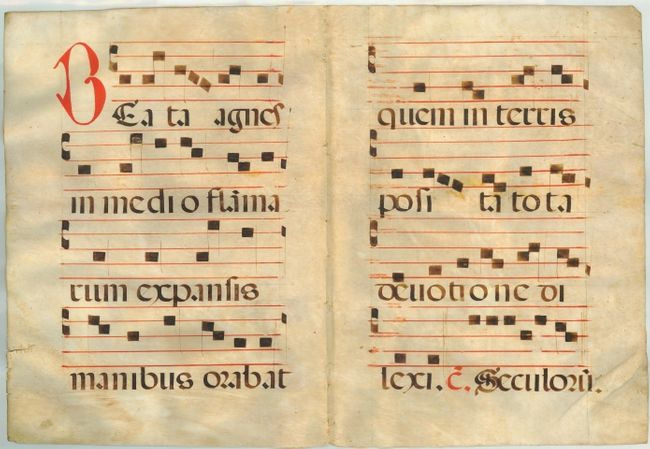 BEata agnes
in medio flãma
rum expansis
manibus orabat
quem in terris
posi ta tota
deuotione di
lexi. č. Seculorũ.